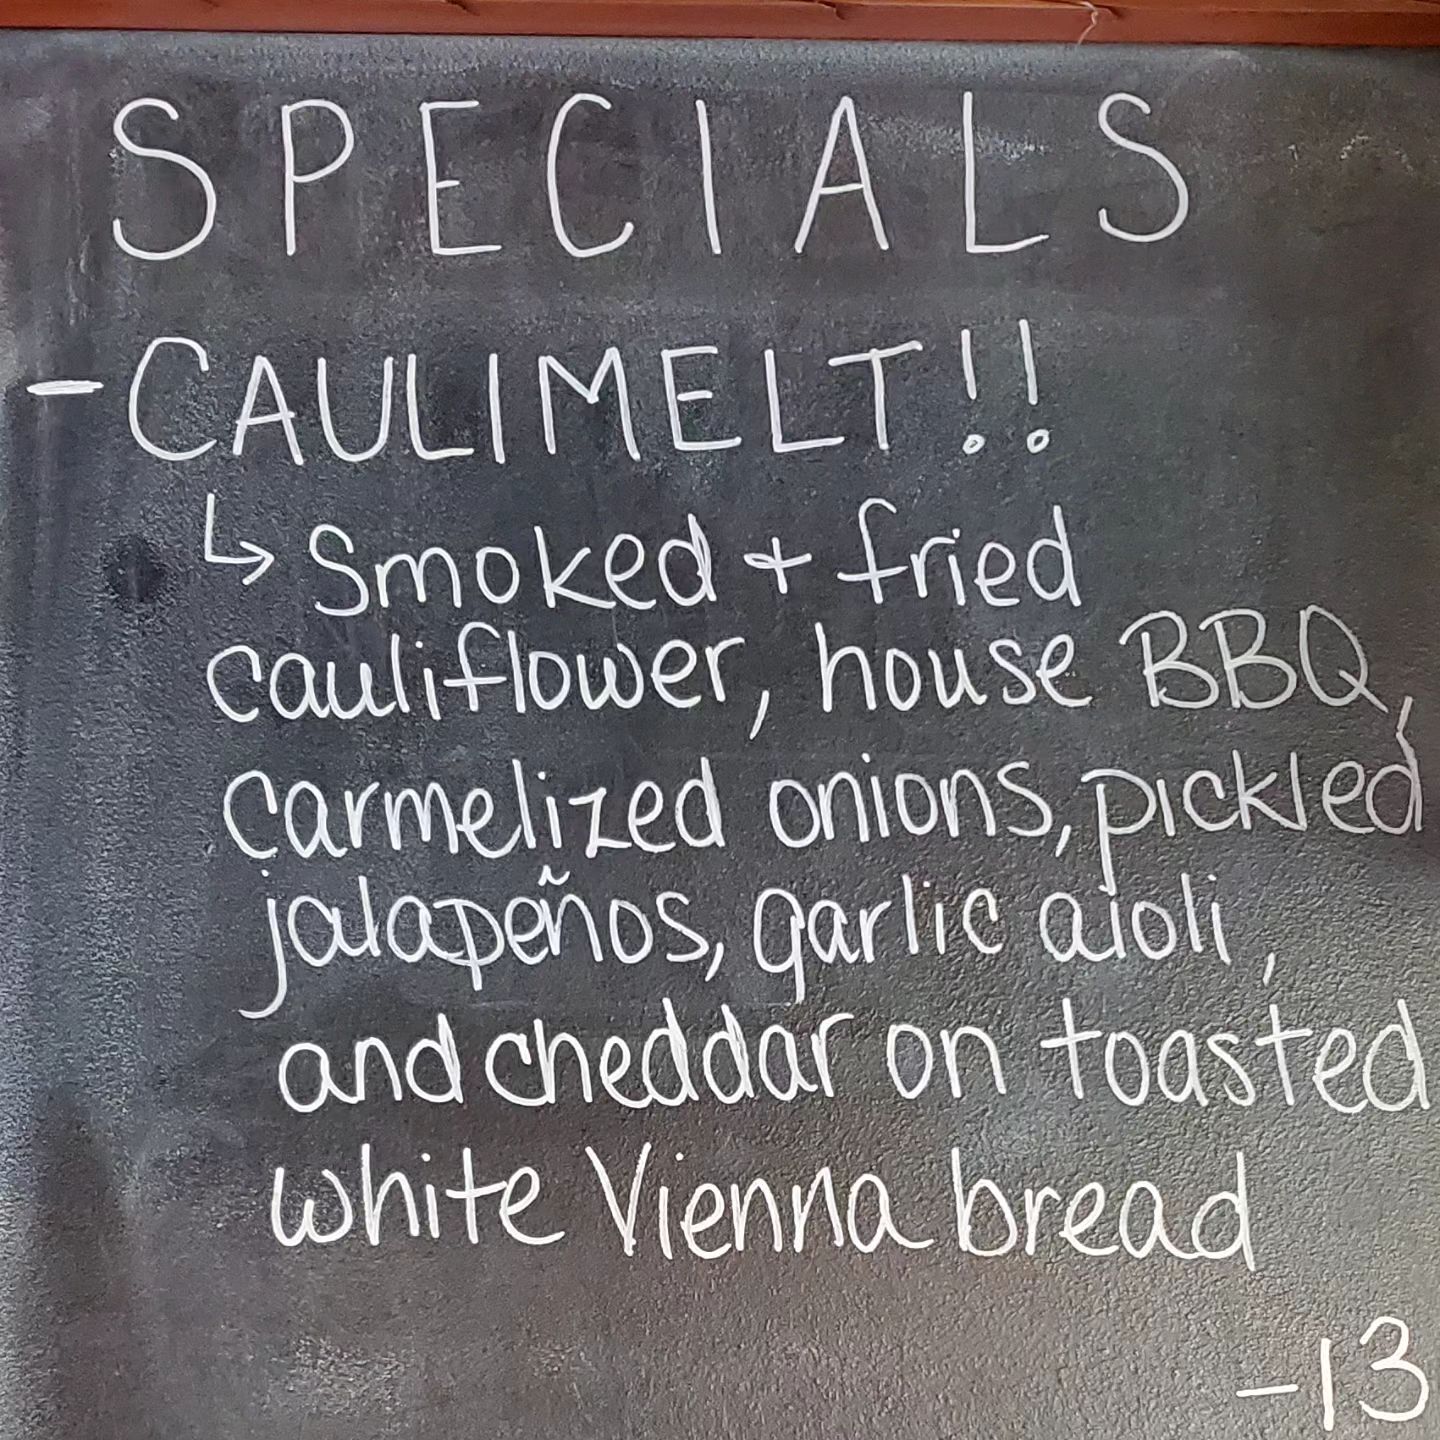 SPECIALS
- CAULIMELT!!
↳ Smoked + fried
cauliflower, house BBQ,
carmelized onions, pickled
jalapeños, garlic aioli,
and cheddar on toasted
white Vienna bread
-13